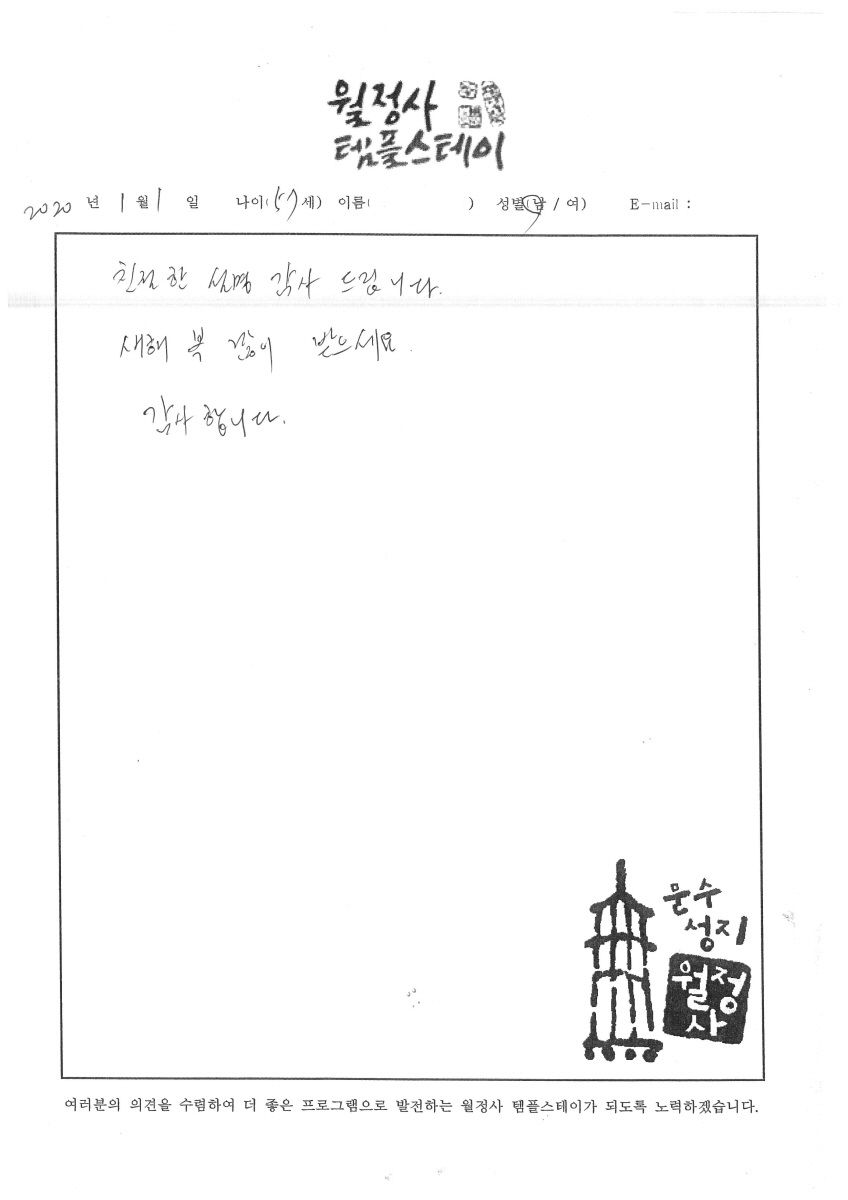 월정사
템플스테이
2020 년 1 월 1 일 나이(57세) 이름( ) 성별(남 / 여) E-mail :
친절한 설명 감사 드립니다.
새해 복 많이 받으세요.
감사합니다.
문수
성지
월정
사
여러분의 의견을 수렴하여 더 좋은 프로그램으로 발전하는 월정사 템플스테이가 되도록 노력하겠습니다.